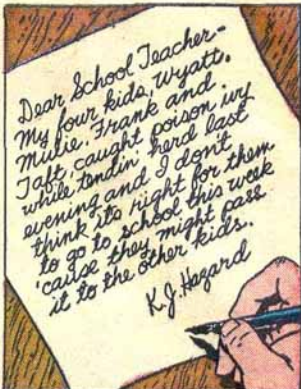 Dear School Teacher-
My four kids, Wyatt,
Mulie, Frank and
Taft, caught poison ivy
while tendin' herd last
evening and I don't
think its right for them
to go to school this week
'cause they might pass
it to the other kids.
K.J. Hazard